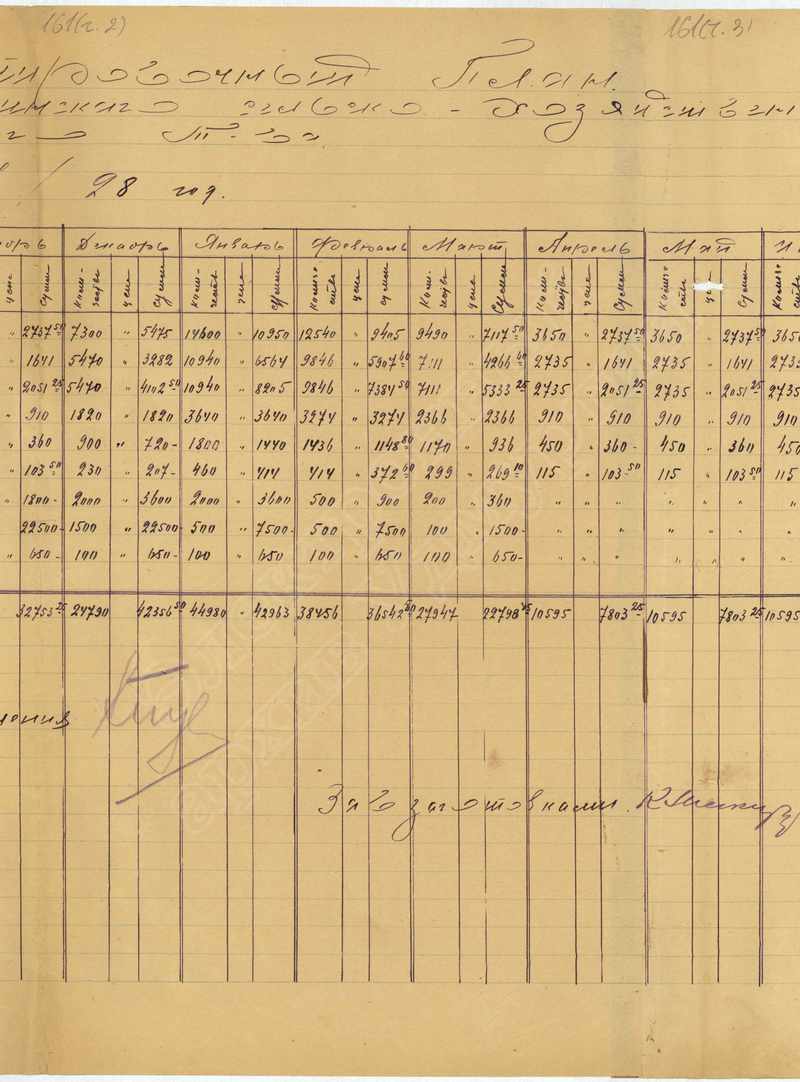 161(ч. 2) 161(ч. 3)
План.
сельско-хозяйствен
го Т-ва
/ 28 год.
Декабрь Январь Февраль Март Апрель Май
цена сумма коли-чество цена сумма коли-чество цена сумма количество цена сумма коли-чество цена сумма коли-чество цена сумма количество цена сумма количество
" 2737 50 7300 " 5475 14600 " 10950 12540 " 9405 9490 " 7117 50 3650 " 2737 50 3650 " 2737 50 3650
" 1641 5470 " 3282 10940 " 6564 9846 " 5907 60 7111 " 4266 60 2735 " 1641 2735 " 1641 2735
" 2051 25 5470 " 4102 50 10940 " 8205 9846 " 7384 50 7111 " 5333 25 2735 " 2051 25 2735 " 2051 25 2735
" 910 1820 " 1820 3640 " 3640 3274 " 3274 2366 " 2366 910 " 910 910 " 910 910
" 360 900 " 720- 1800 " 1440 1436 " 1148 80 1170 " 936 450 " 360- 450 " 360 450
" 103 50 230 " 207- 460 " 414 414 " 372 60 299 " 269 10 115 " 103 50 115 " 103 50 115
" 1800- 2000 " 3600 2000 " 3600 500 " 900 200 " 360 " " " " " " "
22500- 1500 " 22500- 500 " 7500- 500 " 7500 100 " 1500- " " " " " " "
" 650- 100 " 650- 100 " 650 100 " 650 100 " 650- " " " " " " "
32753 25 24790 42356 50 44980 " 42963 38456 36542 50 27947 22798 45 10595 7803 25 10595 7803 25 10595
Зав заготовками.